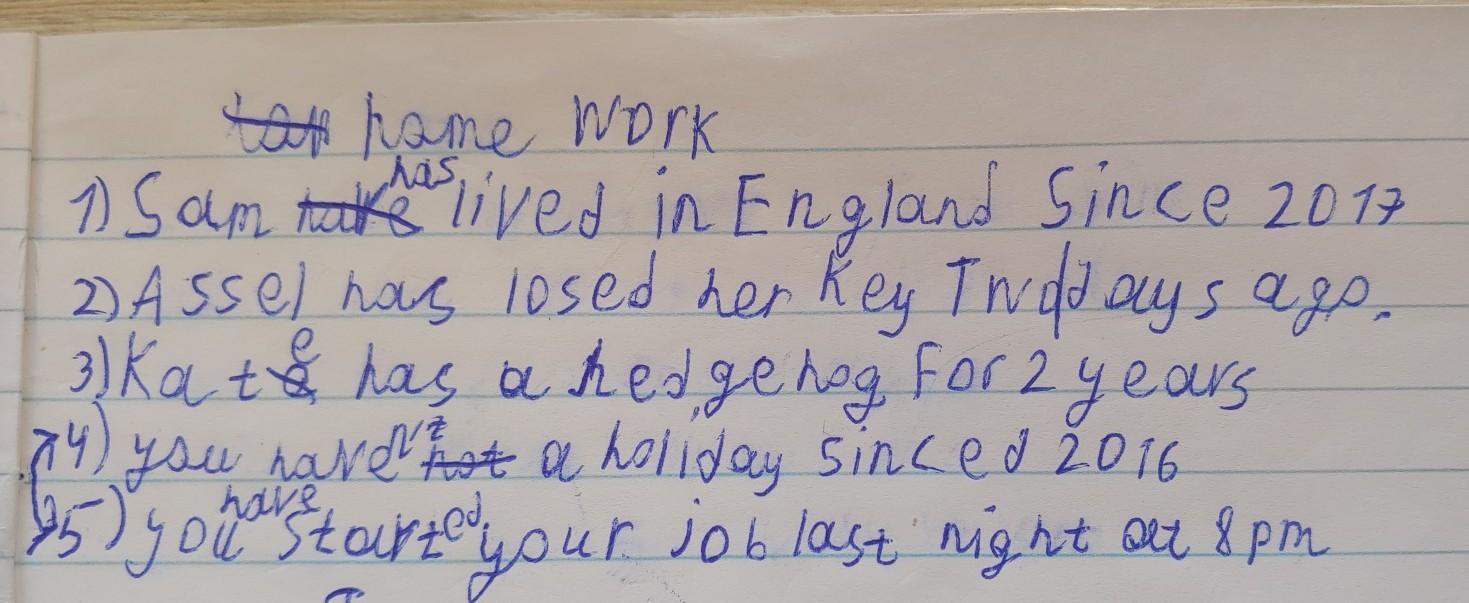 home work
1) Sam has lived in England Since 2017
2) Assel has losed her key Two days ago.
3) Kate has a hedgehog For 2 years
4) you haven't a holiday sinced 2016
5) you have started your job last night at 8 pm